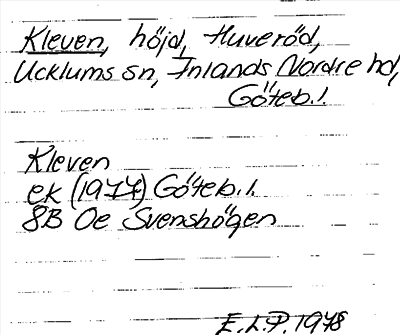 Kleven, höjd, Huveröd,
Ucklums sn, Inlands Nordre hd,
Göteb. l.
Kleven
ek (1977) Göteb. l.
8B Oe Svenshögen
E.L.P. 1978